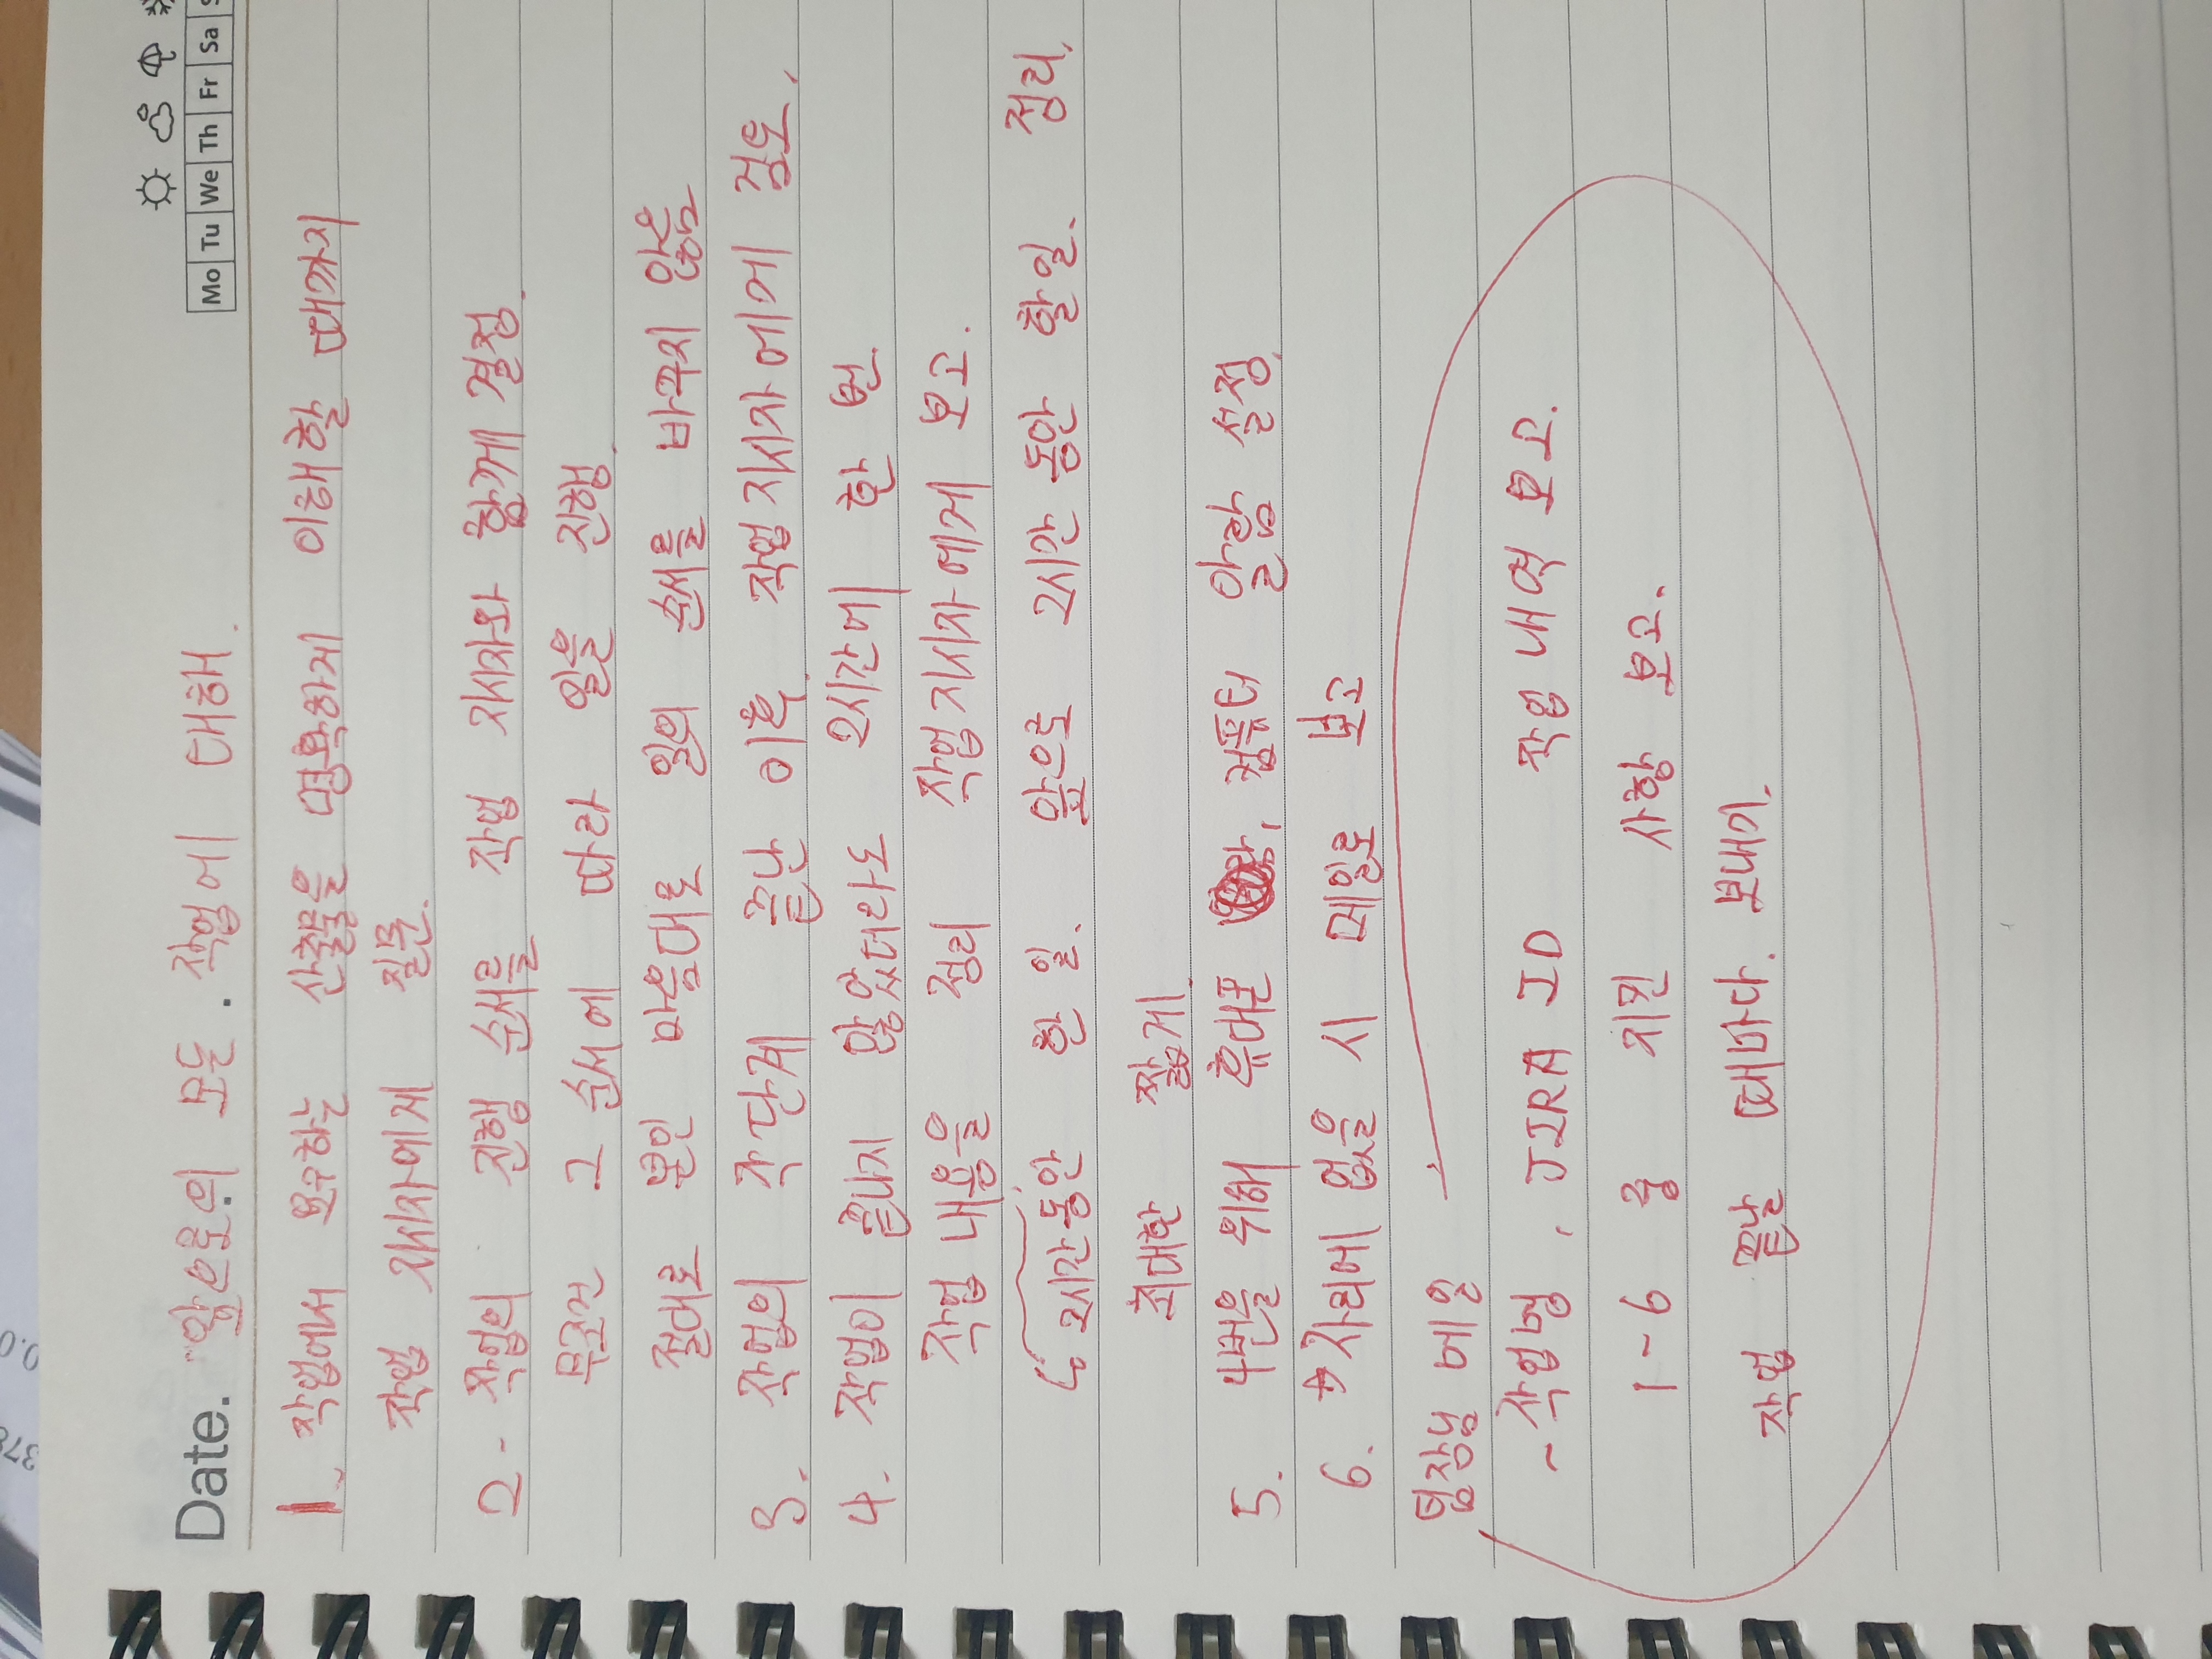 Date. 황순호의 모든. 작업에 대해.
Mo Tu We Th Fr Sa
1. 작업에서 요구하는 산출물을 명확하게 이해할 때까지
작업 지시자에게 질문.
2- 작업의 진행 순서를 작업 지시자와 함께 결정.
무조건 그 순서에 따라 일을 진행.
절대로 본인 마음대로 일의 순서를 바꾸지 않음
3. 작업의 각 단계 끝난 이후, 작업 지시자에게 검토.
4. 작업이 끝나지 않았더라도 2시간에 한 번.
작업 내용을 정리 작업 지시자에게 보고.
↳ 2시간동안 한 일. 앞으로 2시간 동안 할 일. 정리.
최대한 짧게.
5. 4번을 위해 휴대폰, 컴퓨터 알람 설정.
6. 자리에 없을 시 메일로 보고
팀장님 메일
- 작업명, JIRA ID 작업 내역 보고.
1-6 중 지킨 사항 보고.
작업 끝날 때마다. 보내기.